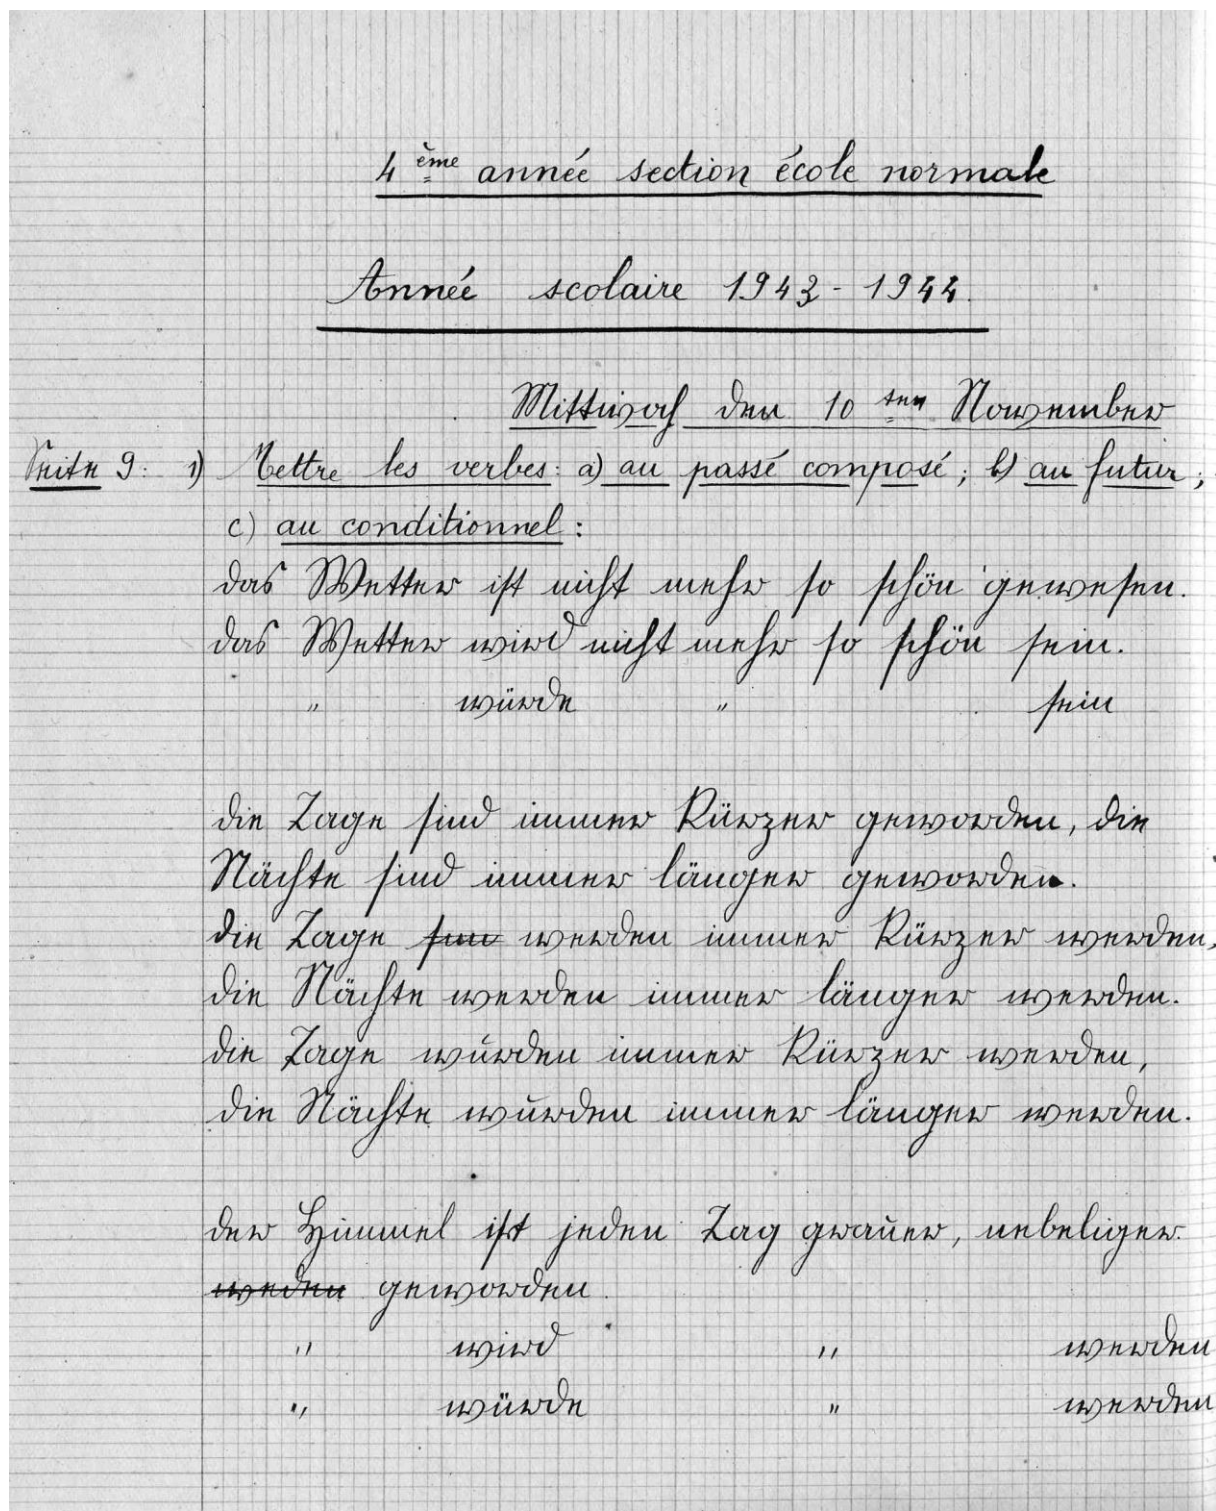 4ème année section école normale
Année scolaire 1943-1944.
Mittwoch den 10ten November
Seite 9: 1) Mettre les verbes: a) au passé composé; b) au futur;
c) au conditionnel:
das Wetter ist nicht mehr so schön gewesen.
das Wetter wird nicht mehr so schön sein.
" würde " sein
die Tage sind immer kürzer geworden, die
Nächte sind immer länger geworden.
die Tage sind werden immer kürzer werden,
die Nächte werden immer länger werden.
die Tage würden immer kürzer werden,
die Nächte würden immer länger werden.
der Himmel ist jeden Tag grauer, nebeliger.
weden geworden.
" wird " werden
" würde " werden